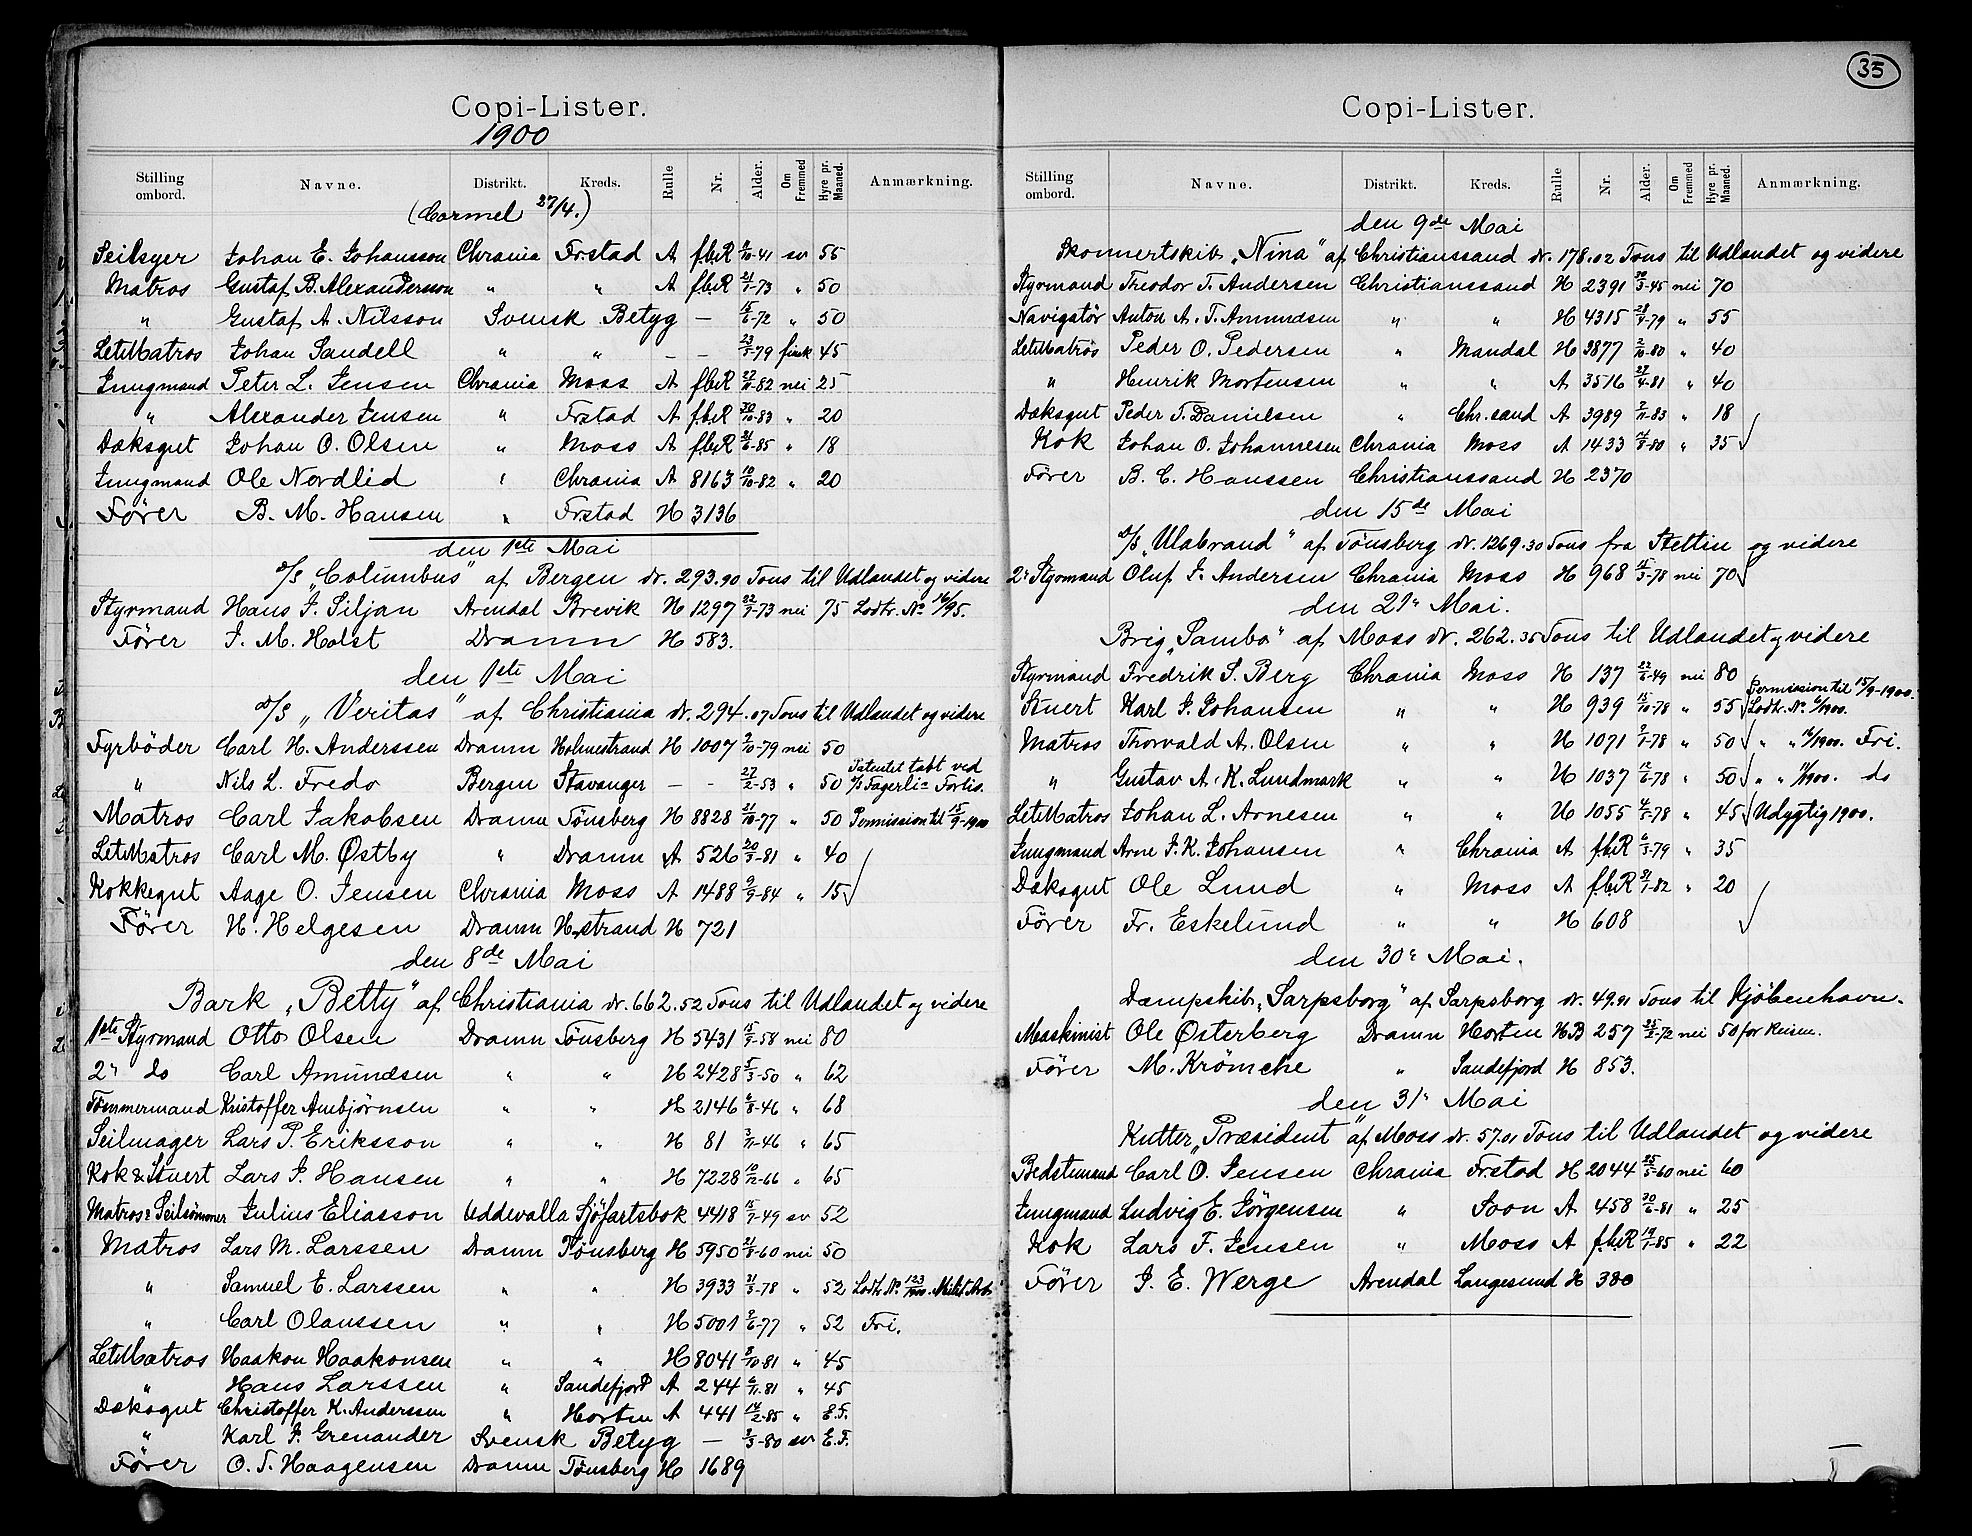 Copi-Lister.
1900
Stilling ombord. Navne. Distrikt. Kreds. Rulle Nr. Alder. Om Fremmed Hyre pr. Maaned. Anmærkning.
(Carmel 27/4.)
Seilsyer Johan E. Johansson Chrania Frstad A fbR -41 sv 55
Matros Gustaf B. Alexanderson " " A fbR -73 " 50
" Gustaf A. Nilsson Svensk Betyg — 15/6-72 " 50
LetMatros Johan Sandell " " – – 23/5-79 finsk 45
Jungmand Peter L. Jensen Chrania Moss A fbR -82 nei 25
" Alexander Jensen " Frstad A fbR 30/10-83 " 20
Dæksgut Johan O. Olsen " Moss A fbR 21/6-85 " 18
Jungmand Ole Nordlid " Chrania A 8163 10/10-82 " 20
Fører B. M. Hansen " Frstad H 3136
den 1ste Mai
D/S „Columbus" af Bergen dr. 293.90 Tons til Udlandet og videre
Styrmand Hans J. Siljan Arendal Brevik H 1297 22/9-73 nei 75 Lodtr. No 16/95.
Fører J. M. Holst Dramn H 583.
den 1ste Mai
D/S „Veritas" af Christiania dr. 294.07 Tons til Udlandet og videre
Fyrbøder Carl H. Anderssen Dramn Holmestrand H 1007 2/10-79 nei 50
" Nils L. Fredo Bergen Stavanger – – 27/2-53 " 50 Patentet tabt ved D/S Fagerli's Forlis.
Matros Carl Jakobsen Dramn Tønsberg H 8828 21/10-77 " 50 Permission til 15/9-1900
LetMatros Carl M. Østby " Dramn A 526 20/3-81 " 40
Kokkegut Aage O. Jensen Chrania Moss A 1488 9/9-84 " 15
Fører H. Helgesen Dramn H.strand H 721
den 8de Mai
Bark „Betty" af Christiania dr. 662.52 Tons til Udlandet og videre
1ste Styrmand Otto Olsen Dramn Tønsberg H 5431 15/9-58 nei 80
2" do Carl Amundsen " " H 2428 5/3-50 " 62
Tømmermand Kristoffer Ambjørnsen " " H 2146 6/8-46 " 68
Seilmager Lars P. Eriksson " " H 81 3/11-46 " 65
Kok & Stuert Lars J. Hansen " " H 7228 10/12-66 " 65
Matros & Seilsømmer Julius Eliasson Uddevalla Sjöfartsbok 4418 15/7-49 sv 52
Matros Lars M. Larssen Dramn Tønsberg H 5950 21/8-60 nei 50
" Samuel E. Larssen " " H 3933 21/3-78 " 52 Lodtr. No 123/1900. Milit. Arb.
" Carl Olaussen " " H 5001 2/6-77 " 52 Fri.
LetMatros Haakon Haakonsen " " H 8041 8/10-81 " 45
" Hans Larssen " Sandefjord A 244 6/11-81 " 45
Dæksgut Christoffer K. Anderssen " Horten A 441 14/2-85 " E.F.
" Karl J. Grenander Svensk Betyg — 3/3-80 sv E.F.
Fører O. T. Haagensen Dramn Tønsberg H 1689
35
Copi-Lister.
Stilling ombord. Navne. Distrikt. Kreds. Rulle Nr. Alder. Om Fremmed Hyre pr. Maaned. Anmærkning.
den 9de Mai
Skonnertskib „Nina" af Christianssand dr. 178.02 Tons til Udlandet og videre
Styrmand Theodor T. Andersen Christianssand H 2391 30/3-45 nei 70
Navigatør Anton A. T. Amundsen " " H 4315 28/4-79 " 55
LetMatros Peder O. Pedersen " Mandal H 3877 2/10-80 " 40
" Henrik Mortensen " " A 3516 27/4-81 " 40
Dæksgut Peder T. Danielsen " Chr.sand A 3989 2/11-83 " 18
Kok Johan O. Johannesen Chrania Moss A 1433 14/8-80 " 35
Fører B. C. Hanssen Christianssand H 2370
den 15de Mai
D/S „Ulabrand" af Tønsberg dr. 1269.30 Tons fra Stettin og videre
2" Styrmand Oluf J. Andersen Chrania Moss H 968 15/3-78 nei 70
den 21" Mai.
Brig „Sambo" af Moss dr. 262.35 Tons til Udlandet og videre
Styrmand Fredrik S. Berg Chrania Moss H 137 22/6-49 nei 80
Stuert Karl J. Johansen " " H 939 15/10-78 " 55 Permission til 15/9-1900. Lodtr. No /1900.
Matros Thorvald A. Olsen " " H 1071 2/1-78 " 50 " " 16/1900. Fri.
" Gustav A. K. Lundmark " " H 1037 12/6-78 " 50 " " 11/1900. do
LetMatros Johan L. Arnesen " " H 1055 4/5-78 " 45 Udygtig 1900.
Jungmand Arne J. K. Johansen " Chrania A fbR 6/3-79 " 35
Dæksgut Ole Lund " Moss A fbR 31/1-82 " 20
Fører Fr. Eskelund " " H 608
den 30" Mai.
Dampskib „Sarpsborg" af Sarpsborg dr. 49.91 Tons til Kjøbenhavn.
Maskinist Ole Østerberg Dramn Horten HB 257 25/2-72 nei 50 for Reisen.
Fører M. Krømcke " Sandefjord H 853.
den 31" Mai
Kutter „Præsident" af Moss dr. 57.01 Tons til Udlandet og videre
Bedstemand Carl O. Jensen Chrania Frstad H 2044 25/5-60 nei 60
Jungmand Ludvig E. Jørgensen " Soon A 458 30/6-81 " 25
Kok Lars F. Jensen " Moss A fbR 19/1-85 " 22
Fører J. E. Werge Arendal Langesund H 380